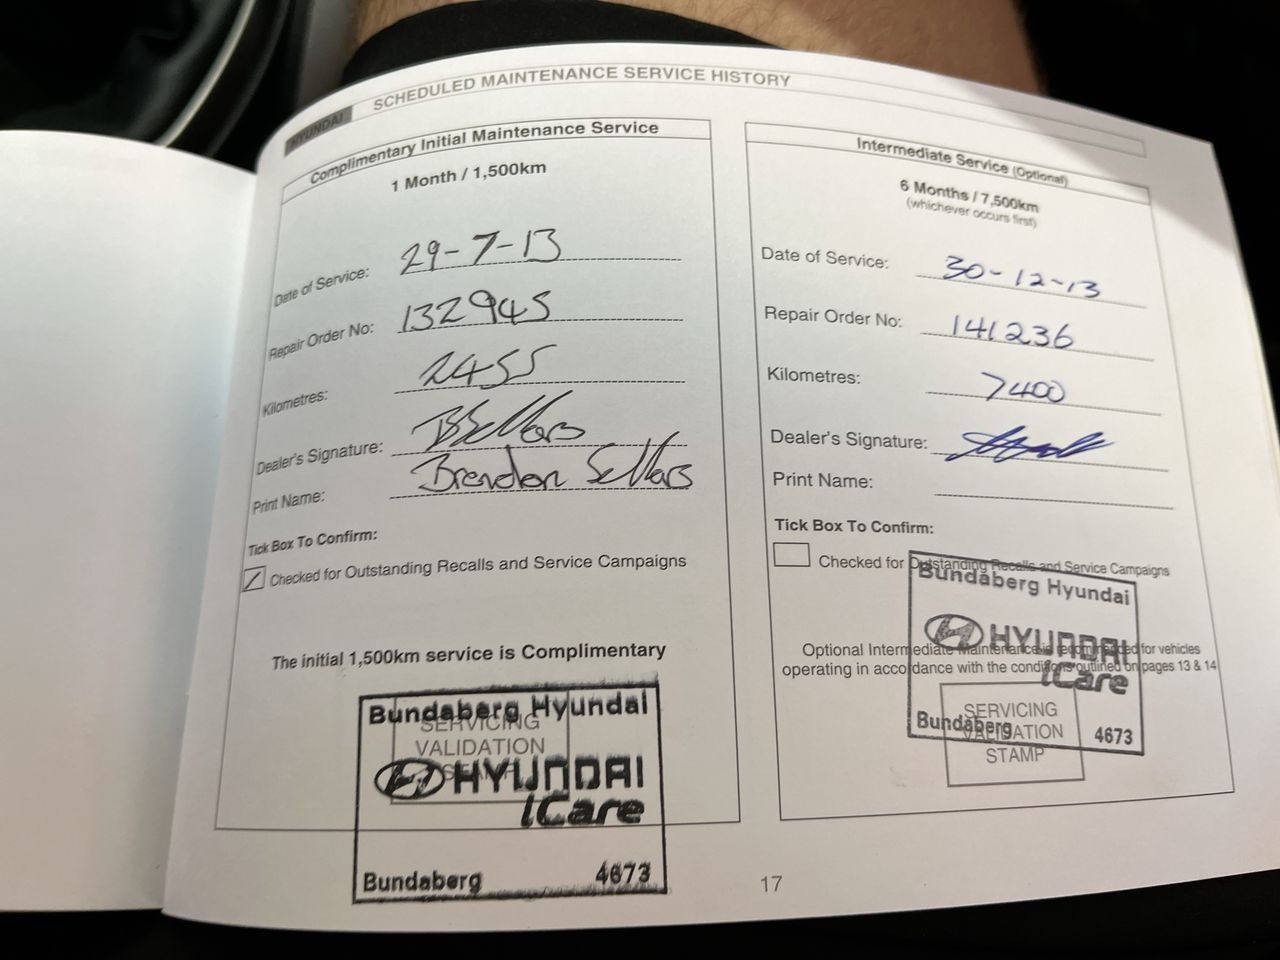 HYUNDAI SCHEDULED MAINTENANCE SERVICE HISTORY
Complimentary Initial Maintenance Service
1 Month / 1,500km
Date of Service: 29-7-13
Repair Order No: 132945
Kilometres: 2455
Dealer's Signature: BSellars
Print Name: Brendon Sellars
Tick Box To Confirm:
Checked for Outstanding Recalls and Service Campaigns
The initial 1,500km service is Complimentary
Bundaberg Hyundai
SERVICING
VALIDATION
HYUNDAI
iCare
Bundaberg 4673
Intermediate Service (Optional)
6 Months / 7,500km
(whichever occurs first)
Date of Service: 30-12-13
Repair Order No: 141236
Kilometres: 7400
Dealer's Signature:
Print Name:
Tick Box To Confirm:
Checked for Outstanding Recalls and Service Campaigns
Bundaberg Hyundai
HYUNDAI
iCare
Optional Intermediate Maintenance is recommended for vehicles
operating in accordance with the conditions outlined on pages 13 & 14
SERVICING
VALIDATION
STAMP
Bundaberg 4673
17